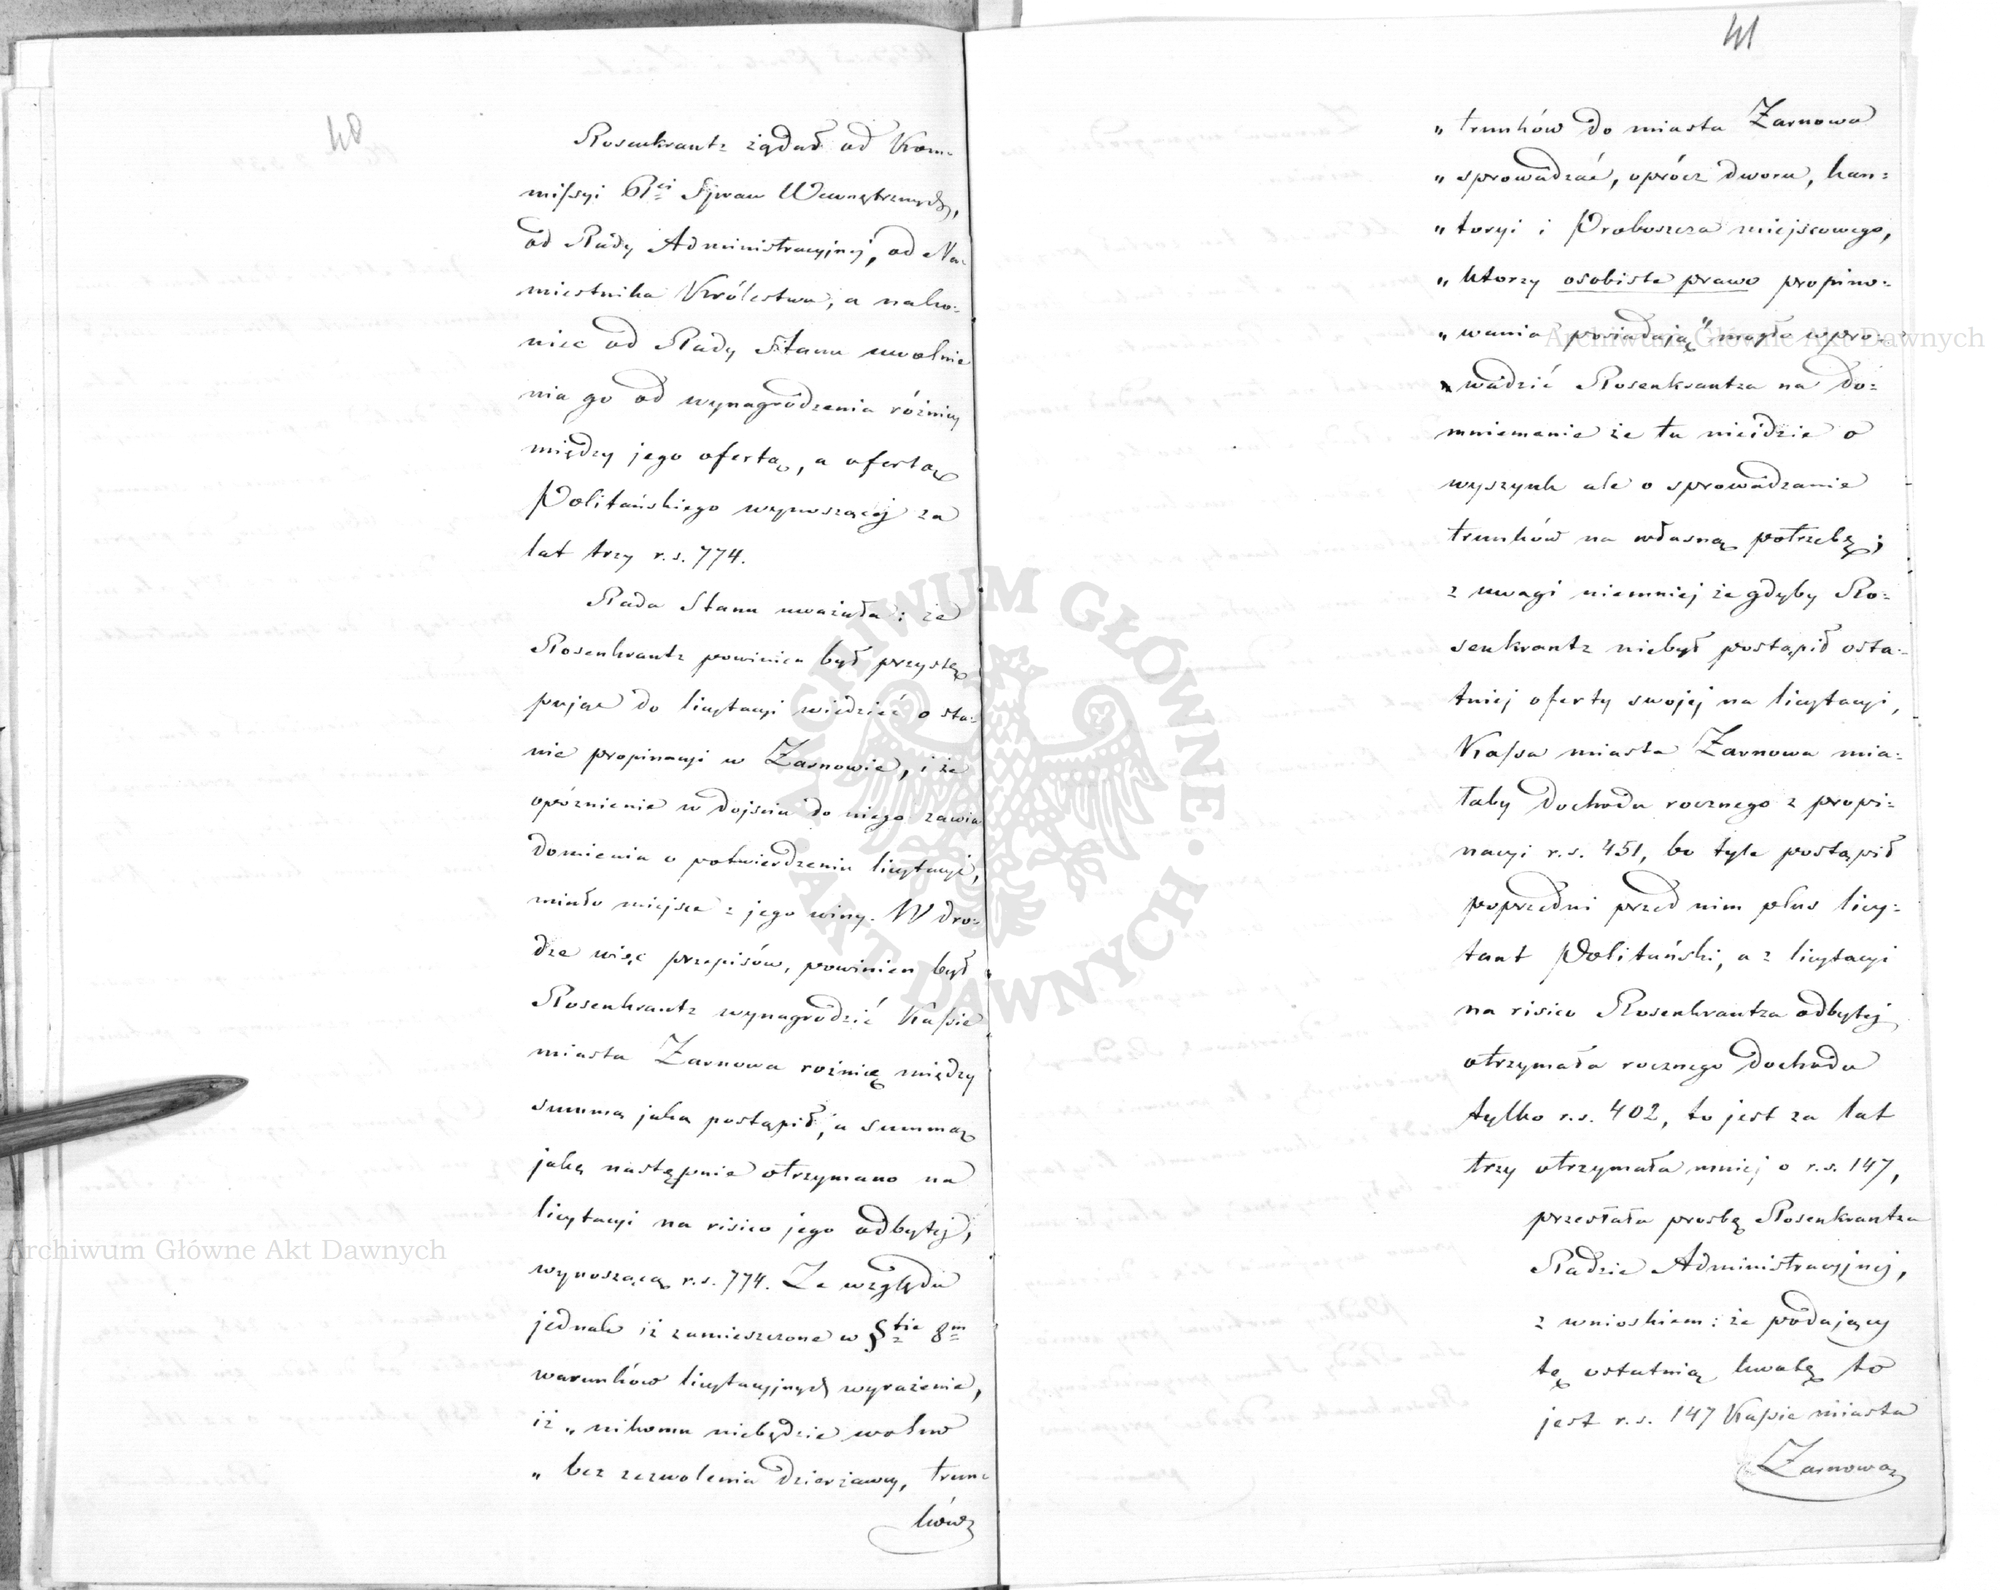 40
Rosenkrantz żądał od Kom-
missyi R.ei Spraw Wewnętrznych,
od Rady Administracyjnej, od Na-
miestnika Królestwa, a nako-
niec od Rady Stanu uwolnie
nia go od wynagrodzenia różnicy
między jego ofertą, a ofertą
Politańskiego wynoszącej za
lat trzy r.s. 774.
Rada Stanu uważała: że
Rosenkrantz powinien był przystę
pując do licytacyi wiedzieć o sta-
nie propinacyi w Żarnowie, i że
opóźnienie w dojściu do niego zawia
domienia o potwierdzeniu licytacyi,
miało miejsce z jego winy. W dro-
dze więc przepisów, powinien był
Rosenkrantz wynagrodzić Kassie
miasta Żarnowa roźnicę między
summą jaką postąpił, a summą
jaką następnie otrzymano na
licytacyi na risico jego odbytej,
wynoszącą r.s. 774. Ze względu
jednak iż zamieszczone w §tie 8m
warunków licytacyjnych wyrażenie,
iż „nikomu niebędzie wolno
„bez zezwolenia dzierżawcy, trun-
ków
41
„trunków do miasta Żarnowa
„sprowadzać, oprócz dworu, kan-
„toryi i Proboszcza miejscowego,
„którzy osobiste prawo propino-
„wania posiadają" mogło wpro-
wadzić Rosenkrantza na do-
mniemanie że tu nieidzie o
wyszynk ale o sprowadzanie
trunków na własną potrzebę;
z uwagi niemniej że gdyby Ro-
senkrantz niebył postąpił osta-
tniej oferty swojej na licytacyi,
Kassa miasta Żarnowa mia-
łaby dochodu rocznego z propi-
nacyi r.s. 451, bo tyle postąpił
poprzedni przed nim plus licy-
tant Politański, a z licytacyi
na risico Rosenkrantza odbytej
otrzymała rocznego dochodu
tylko r.s. 402, to jest za lat
trzy otrzymała mniej o r.s. 147,
przesłała prosbę Rosenkrantza
Radzie Administracyjnej,
z wnioskiem: że podający
tę ostatnią kwotę to
jest r.s. 147 Kassie miasta
Żarnowa
Archiwum Główne Akt Dawnych
Archiwum Główne Akt Dawnych
ARCHIWUM GŁÓWNE · AKT DAWNYCH ·